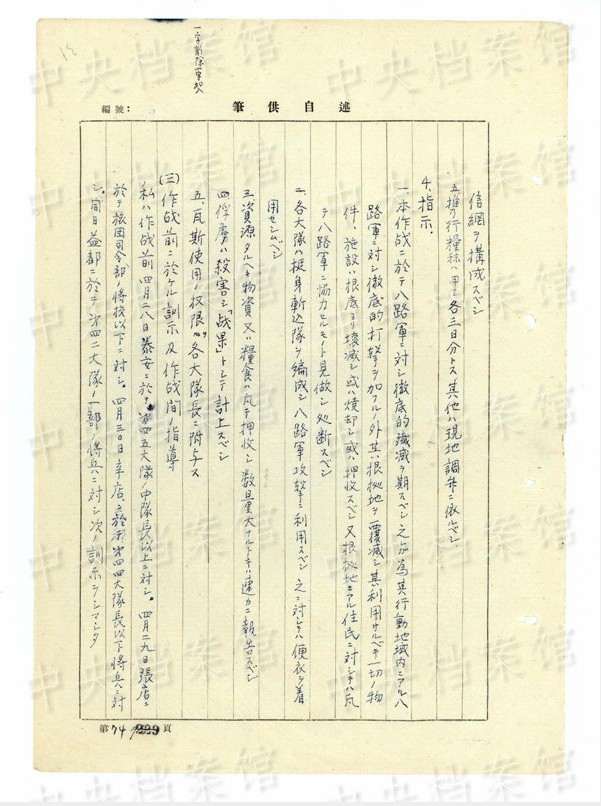 述自供筆
編號:
一字削除
信網ヲ構成スベシ
五、携行糧秣ハ甲乙各三日分トス其他ハ現地調弁ニ依ルベシ
4、指示。
一、本作戦ニ於テ八路軍ニ対シ徹底的殲滅ヲ期スベシ之レガ為其行動地域内ニアル八
路軍ニ対シ徹底的打撃ヲ加フルノ外其ノ根拠地ヲ覆滅シ其ノ利用サルベキ一切ノ物
件、施設ハ根底ヨリ壊滅シ或ハ焼却シ或ハ押收スベシ又根拠地ニアル住民ニ対シテハ凡
テ八路軍ニ協力セルモノト見做シ処断スベシ
二、各大隊ハ挺身斬込隊ヲ編成シ八路軍攻撃ニ利用スベシ之ニ対シテハ便衣ヲ着
用セシムベシ
三、資源タルベキ物資又ハ糧食ハ凡テ押收シ数量大ナルトキハ速カニ報告スベシ
四、俘虜ハ殺害シ「战果」トシテ計上スベシ
五、瓦斯使用ノ权限ハ各大隊長ニ附与ス
(三)作战前ニ於ケル訓示及作战間ノ指導
私ハ作战前四月二八日泰安ニ於テ第四五大隊ノ中隊長以上ニ対シ。四月二九日張店ニ
於テ旅団司令部ノ将校以下ニ対シ。四月三〇日辛店ニ於テ第四四大隊長以下将兵ニ対
シ、同日益都ニ於テ第四二大隊ノ一部ノ将兵ニ対シ次ノ訓示ヲシマシタ
第74頁
中央档案馆
中央档案馆
中央档案馆
中央档案馆